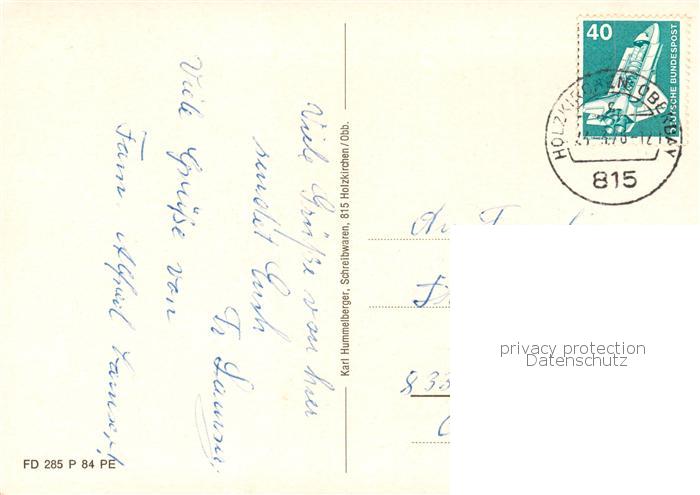 Viele Grüße von hier
sendet Euch
Viele Grüße von
Fam. Alfred
Karl Hummelberger, Schreibwaren, 815 Holzkirchen/Obb.
FD 285 P 84 PE
40
DEUTSCHE BUNDESPOST
HOLZKIRCHEN, OBERBAY
815
An
833
privacy protection
Datenschutz